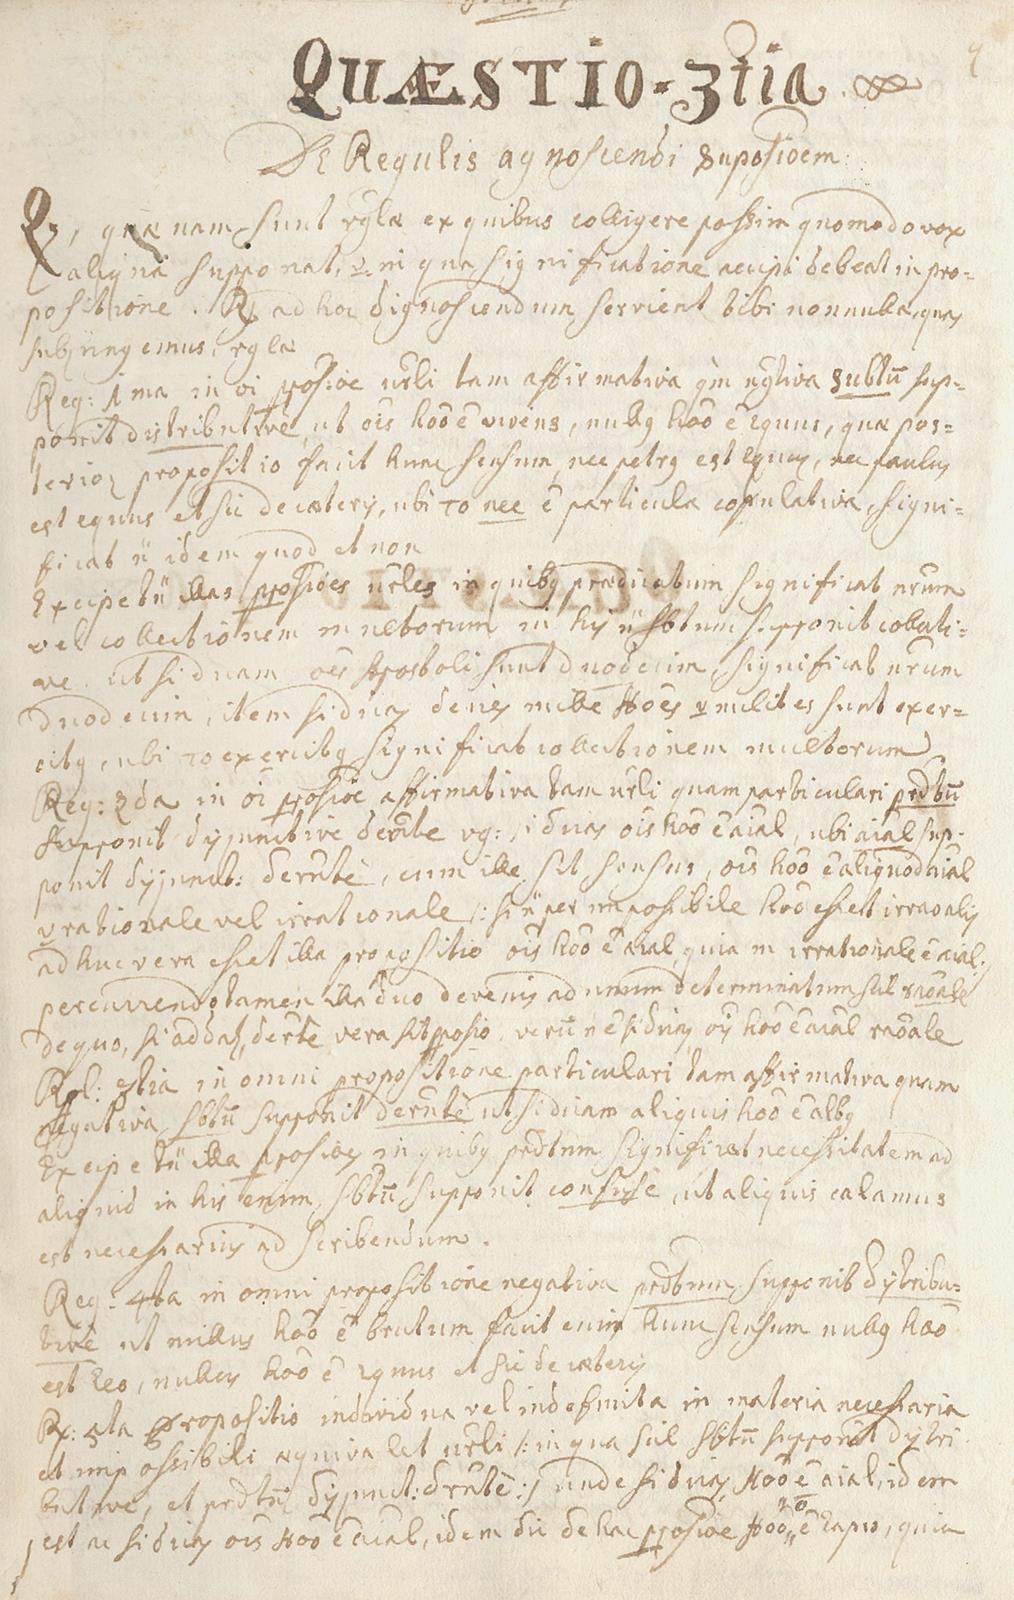 QUÆSTIO-3tia
De Regulis agnoscendi suposiõem
Q, quænam sunt rglæ ex quibus colligere possim quomodo vox
aliqua supponat, in qua significatione accipi debeat in pro=
positione. Rz ad hoc dignoscendum servient tibi nonnullæ, quas
subjungemus, rglæ
Reg: 1ma in oi proposioe urli tam affirmativa qm ngtiva subtũ sup=
ponit distributive, ut ois hoõ ẽ vivens, nullq hoõ ẽ equus, quæ pos=
terior propositio facit hunc sensum, nec petrq est equus, nec paulus
est equus et sic de cæteris, ubi τo nec ẽ particula copulativa, signi=
ficat ñ idem quod et non
Excipe tñ illas prosiões urles in quibq prædicatum significat nrum
vel collectionem multorum in his ñ sbtum supponit collecti=
ve. ut si dicam oẽs Apostoli sunt duodecim, significat nrum
duodecim, item si dicas decies mille Hoẽs milites sunt exer=
citq, ubi τo exercitq significat collectionem multorum
Reg: 2da in oi prosioẽ affirmativa tam urli quam particulari prdtũ
supponit disjunctive dernte vg: si dicas ois hoõ ẽ aial, ubi aial sup-
ponit disjunct: dernte, cum ille sit sensus, ois hoõ ẽ aliquod aial
rationale vel irrationale /: si ñ per impossibile hoõ esset irraoalis
adhuc vera esset illa propositio ois hoõ ẽ aial quia in irrationale ẽ aial:/
percurrendo tamen illa duo devenis ad unum determinatum sul raoale
de quo, si addas, dernte vera sit prosio, verũ n ẽ si dicas ois hoõ ẽ aial raoale
Rgl: 3tia in omni propositione particulari tam affirmativa quam
negativa, sbtũ supponit dernte ut si dicam aliquis hoõ ẽ albq
Excipe tñ illa prosioẽs in quibq prdtum significat necessitatem ad
aliquid in his enim sbtũ supponit confuse, ut aliquis calamus
est necessarius ad scribendum.
Reg: 4ta in omni propositione negativa prdtum supponit distribu=
tive ut nullus hoõ ẽ brutum facit enim hunc sensum nullq hoõ
est leo, nullus hoõ ẽ equus et sic de cæteris
Rg: 5ta propositio individua vel indefinita in materia necessaria
et impossibili æquivalet urli /: in qua sul sbtũ supponit distri
butive, et prdtũ disjunct: drnte:/ unde si dicas Hoõ ẽ aial, idem
est ac si dicas ois Hoõ ẽ aial, idem dic de hac prosioe Hoõ ñ ẽ lapis, quia